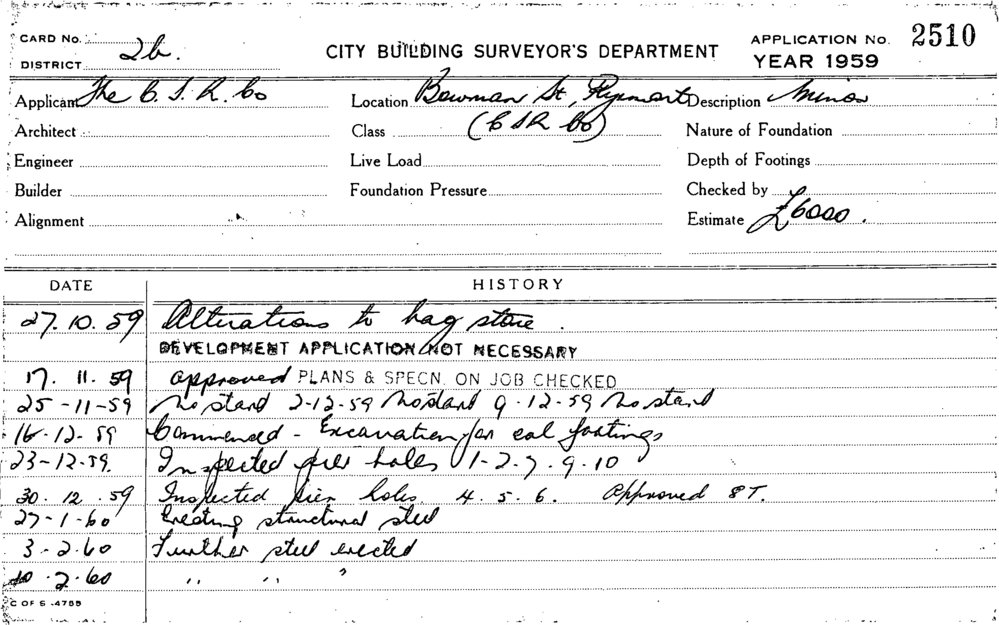 CARD No. 2b.
DISTRICT
CITY BUILDING SURVEYOR'S DEPARTMENT
APPLICATION No. 2510
YEAR 1959
Applicant The C. S. R. Co Location Bowman St, Pyrmont Description Minor
Architect Class (CSR Co) Nature of Foundation
Engineer Live Load Depth of Footings
Builder Foundation Pressure Checked by
Alignment Estimate £6000.
DATE HISTORY
27.10.59 Alterations to bag store.
DEVELOPMENT APPLICATION NOT NECESSARY
17.11.59 approved PLANS & SPECN. ON JOB CHECKED
25-11-59 No start 2-12-59 No start 9-12-59 No start
16-12-59 Commenced - Excavation for col footings
23-12-59. Inspected pier holes 1-2-7.9.10
30.12.59 Inspected pier holes 4.5.6. Approved 8T.
27-1-60 Erecting structural steel
3-2-60 Further steel erected
10.2.60 " " "
C OF S -4755